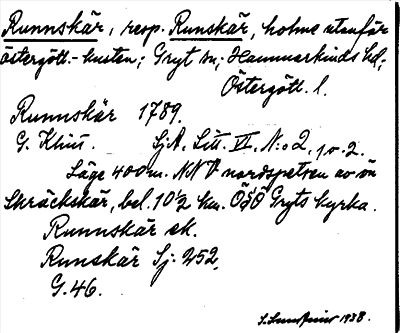 Runnskär, resp. Runskär, holme utanför
östergötl.-kusten; Gryt sn; Hammarkinds hd;
Östergötl. l.
Runnskär 1789.
G. Klint. SjA. Litt. VI, N:o 2, 1 o. 2.
Läge 400 m. NNV nordspetsen av ön
Skräckskär, bel. 10½ km. ÖSÖ Gryts kyrka.
Runnskär ek.
Runskär Sj. 252,
G. 46.
1938.